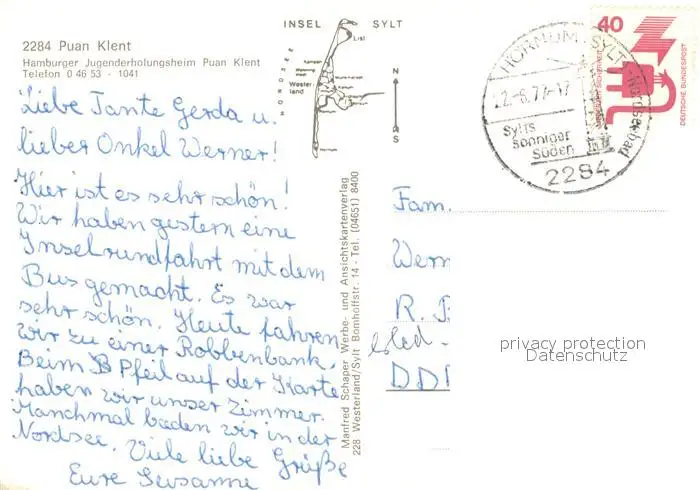 2284 Puan Klent
Hamburger Jugenderholungsheim Puan Klent
Telefon 0 46 53 - 1041
Liebe Tante Gerda u.
lieber Onkel Werner!
Hier ist es sehr schön!
Wir haben gestern eine
Inselrundfahrt mit dem
Bus gemacht. Es war
sehr schön. Heute fahren
wir zu einer Robbenbank.
Beim Pfeil auf der Karte
haben wir unser Zimmer.
Manchmal baden wir in der
Nordsee. Viele liebe Grüße
Eure Susanne
INSEL SYLT
NORDSEE
List
Kampen
Wester
land
N
S
Manfred Schaper Werbe- und Ansichtskartenverlag
228 Westerland/Sylt Bomhoffstr. 14 - Tel. (04651) 8400
HÖRNUM, SYLT Nordseebad
Sylts
sonniger
Süden
2284
40
DEUTSCHE BUNDESPOST
Fam.
Wern
R.
DD
privacy protection
Datenschutz